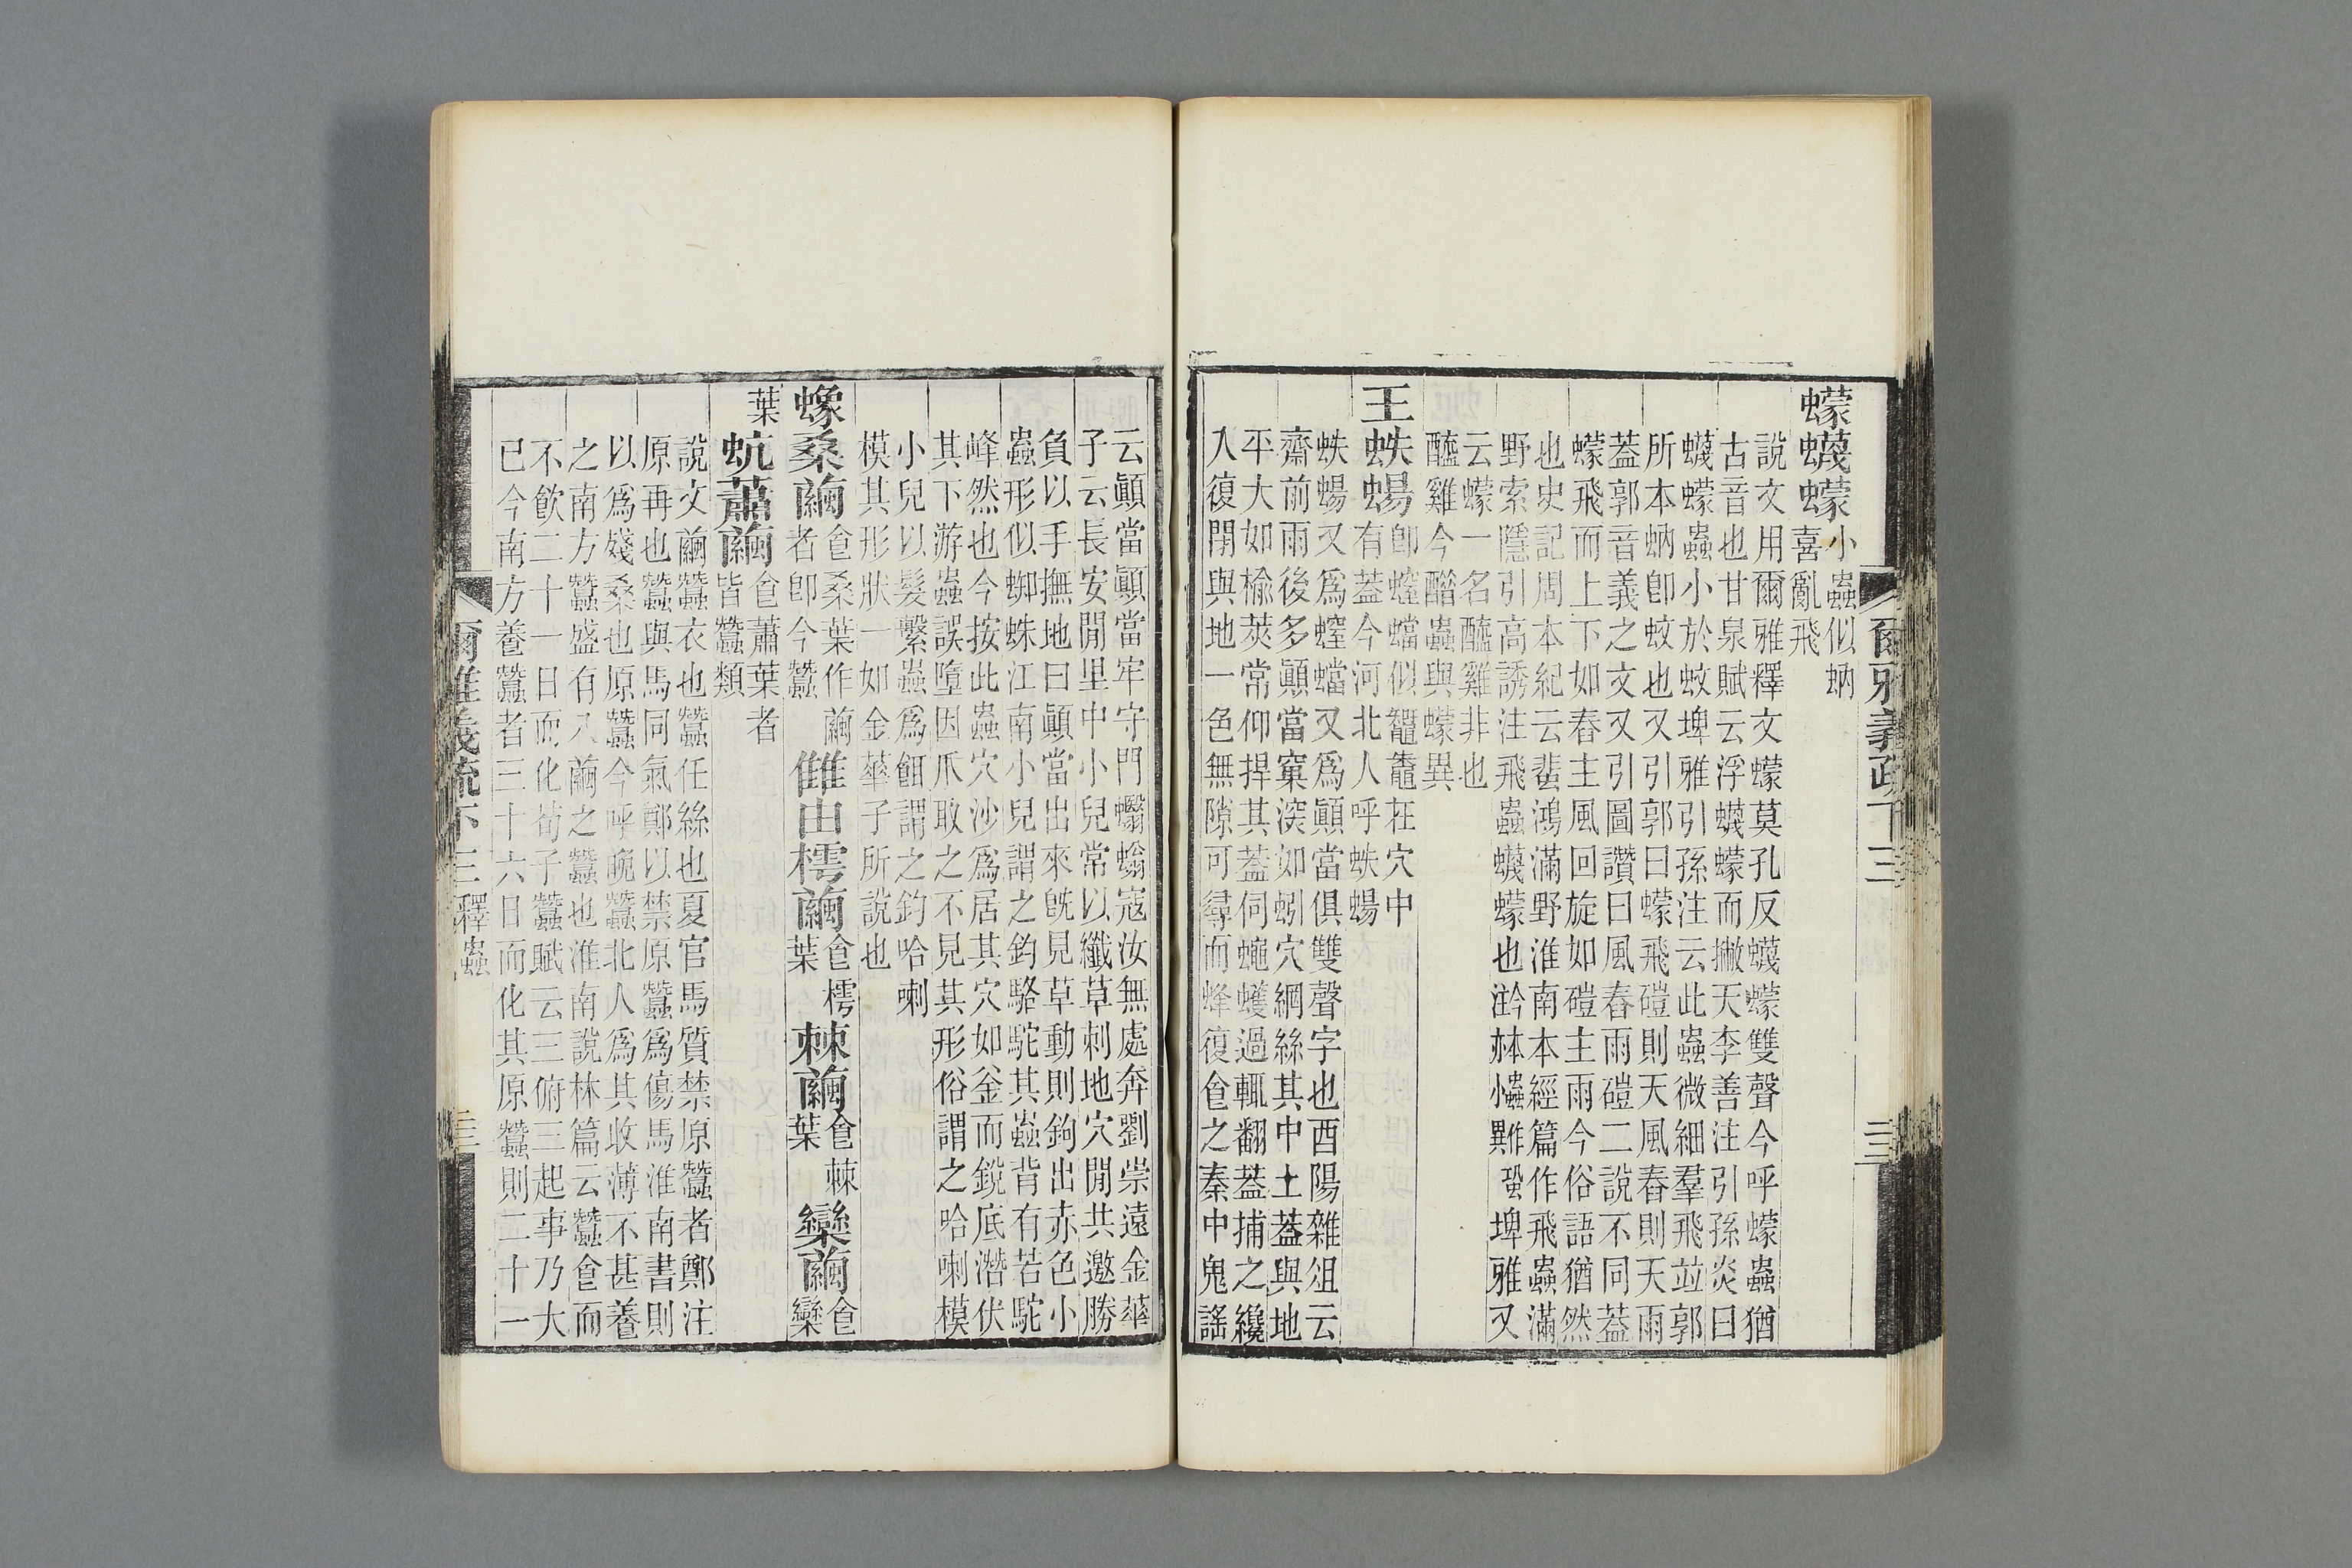 爾雅義疏下三
蠓蠛蠓小蟲似蚋
喜亂飛
說文用爾雅釋文蠓莫孔反蠛蠓雙聲今呼蠓蟲猶
古音也甘泉賦云浮蠛蠓而撇天李善注引孫炎曰
蠛蠓蟲小於蚊埤雅引孫注云此蟲微細羣飛竝郭
所本蚋卽蚊也又引郭曰蠓飛磑則天風舂則天雨
蓋郭音義之文又引圖讚曰風舂雨磑二說不同蓋
蠓飛而上下如舂主風回旋如磑主雨今俗語猶然
也史記周本紀云蜚鴻滿野淮南本經篇作飛蟲滿
野索隱引高誘注飛蟲蠛蠓也 埤雅又
云蠓一名醯雞非也
醯雞今醋蟲與蠓異
王蛈蝪卽螲蟷似鼅鼄在穴中
有蓋今河北人呼蛈蝪
蛈蝪又爲螲蟷又爲顚當俱雙聲字也酉陽雜俎云
齋前雨後多顚當窠深如蚓穴網絲其中土蓋與地
平大如榆莢常仰捍其蓋伺蠅蠖過輒翻蓋捕之纔
入復閉與地一色無隙可尋而蜂復食之秦中兒謠
云顚當顚當牢守門蠮螉寇汝無處奔劉崇遠金華
子云長安閒里中小兒常以纖草刺地穴閒共邀勝
負以手撫地曰顚當出來旣見草動則鉤出赤色小
蟲形似蜘蛛江南小兒謂之釣駱駝其蟲背有若駝
峰然也今按此蟲穴沙爲居其穴如釜而銳底潛伏
其下游蟲誤墮因爪取之不見其形俗謂之哈喇模
小兒以髮繫蟲爲餌謂之釣哈喇
模其形狀一如金華子所說也
蟓桑繭食桑葉作繭者卽今蠶雔由樗繭食樗葉棘繭食棘葉欒繭食欒
葉蚢蕭繭食蕭葉者皆蠶類
說文繭蠶衣也蠶任絲也夏官馬質禁原蠶者鄭注
原再也蠶與馬同氣鄭以禁原蠶爲傷馬淮南書則
以爲殘桑也原蠶今呼晚蠶北人爲其收薄不甚養
之南方蠶盛有八繭之蠶也淮南說林篇云蠶食而
不飲二十一日而化荀子蠶賦云三俯三起事乃大
已今南方養蠶者三十六日而化其原蠶則二十一
爾雅義疏下三釋蟲